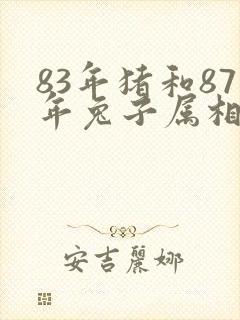 83年猪和87
年兔子属相
安吉麗娜